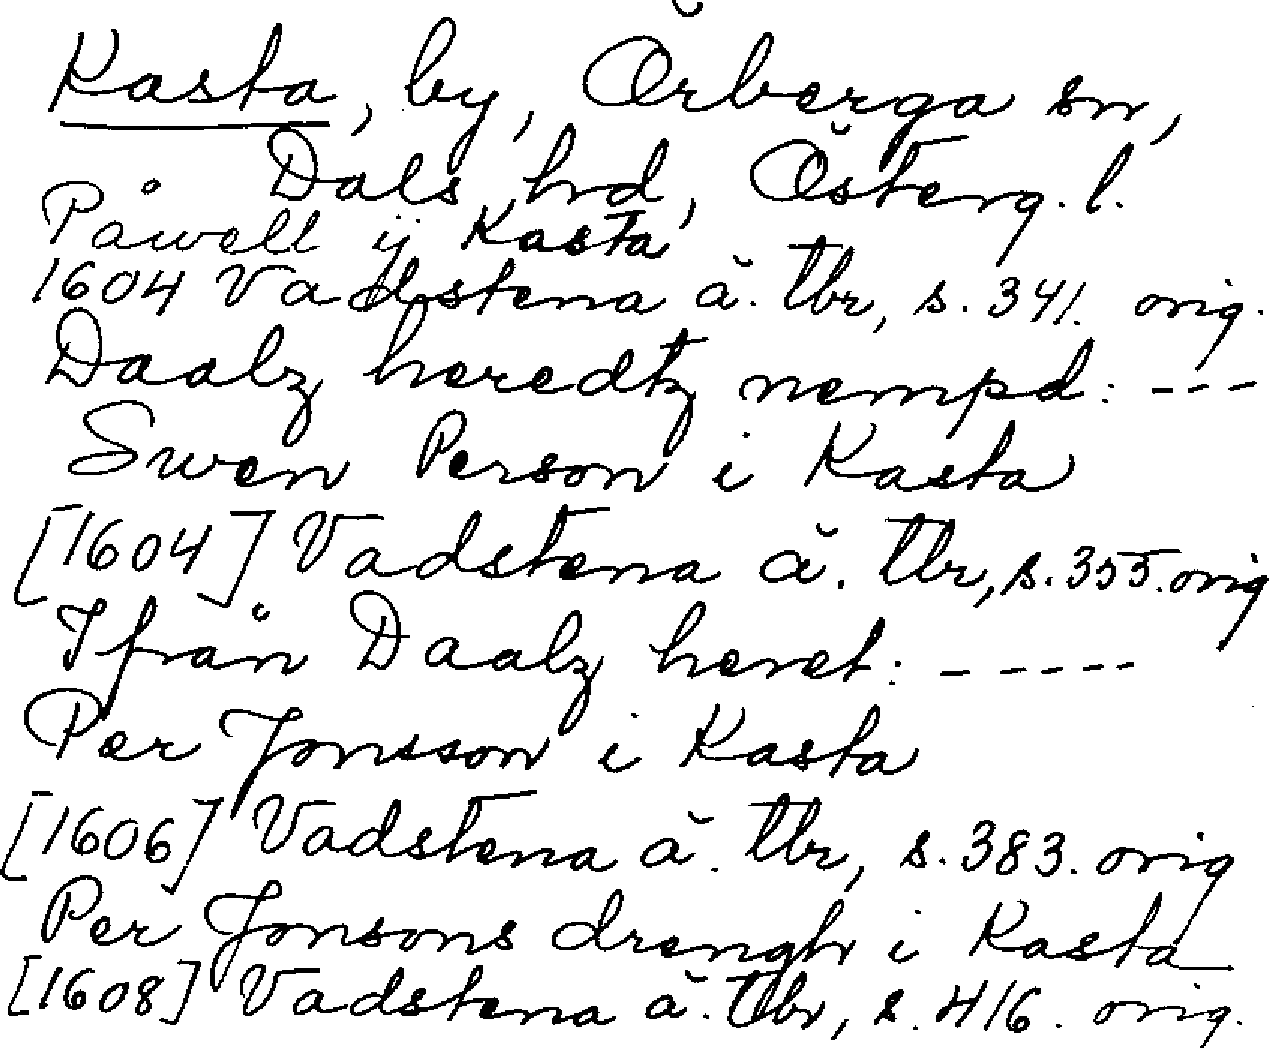 Kasta, by, Örberga sn,
Dals hrd, Österg. l.
Påwell ij Kasta
1604 Vadstena ä. tbr, s. 341. orig.
Daalz heredtz nempd: ---
Swen Person i Kasta
[1604] Vadstena ä. tbr, s. 355. orig
Ifrån Daalz heret: -----
Per Jonsson i Kasta
[1606] Vadstena ä. tbr, s. 383. orig
Per Jonsons drengh i Kasta
[1608] Vadstena ä. tbr, s. 416. orig.